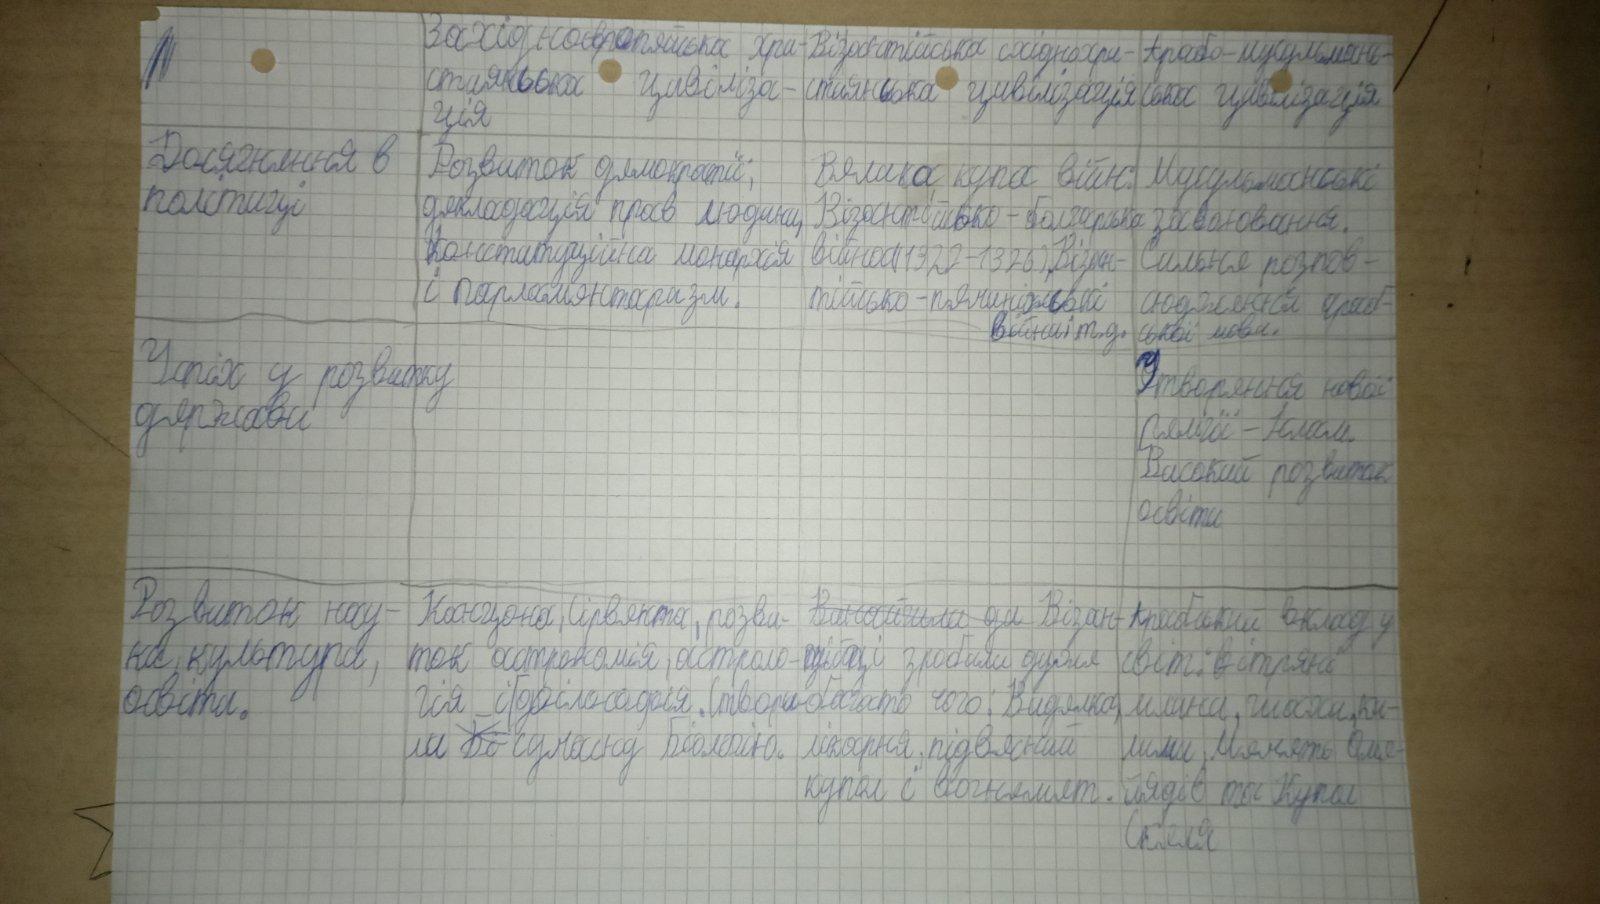 Західноєвропейська хри-
стиянська цивіліза-
ція
Візантійська східнохри-
стиянська цивілізація
Арабо-мусульман-
ська цивілізація
Досягнення в
політиці
Розвиток демократії,
декладація прав людини,
Конституційна монархія
і Парламентаризм.
Велика купа війн:
Візантійсько-болгарська
війна (1322-1326), Візан-
тійсько-печенізькі
війни і т.д.
Мусульманські
завоювання.
Сильне розпов-
сюдження араб-
ської мови.
Успіх у розвитку
держави
Утворення нової
релігії - Іслам.
Високий розвиток
освіти
Розвиток нау-
ки, культура,
освіта.
Канцона, Сірвента, розви-
ток астрономія, астроло-
гія і філософія. Створи-
ли сучасну Біологію.
да Візан-
тійці зробили дуже
багато чого: Виделка,
лікарня, підвесний
купол і вогнемет.
Арабський вклад у
світ: вітряні
млини, шахи, ки-
лими, Мечеть Оме-
йядів та Купол
Скеля